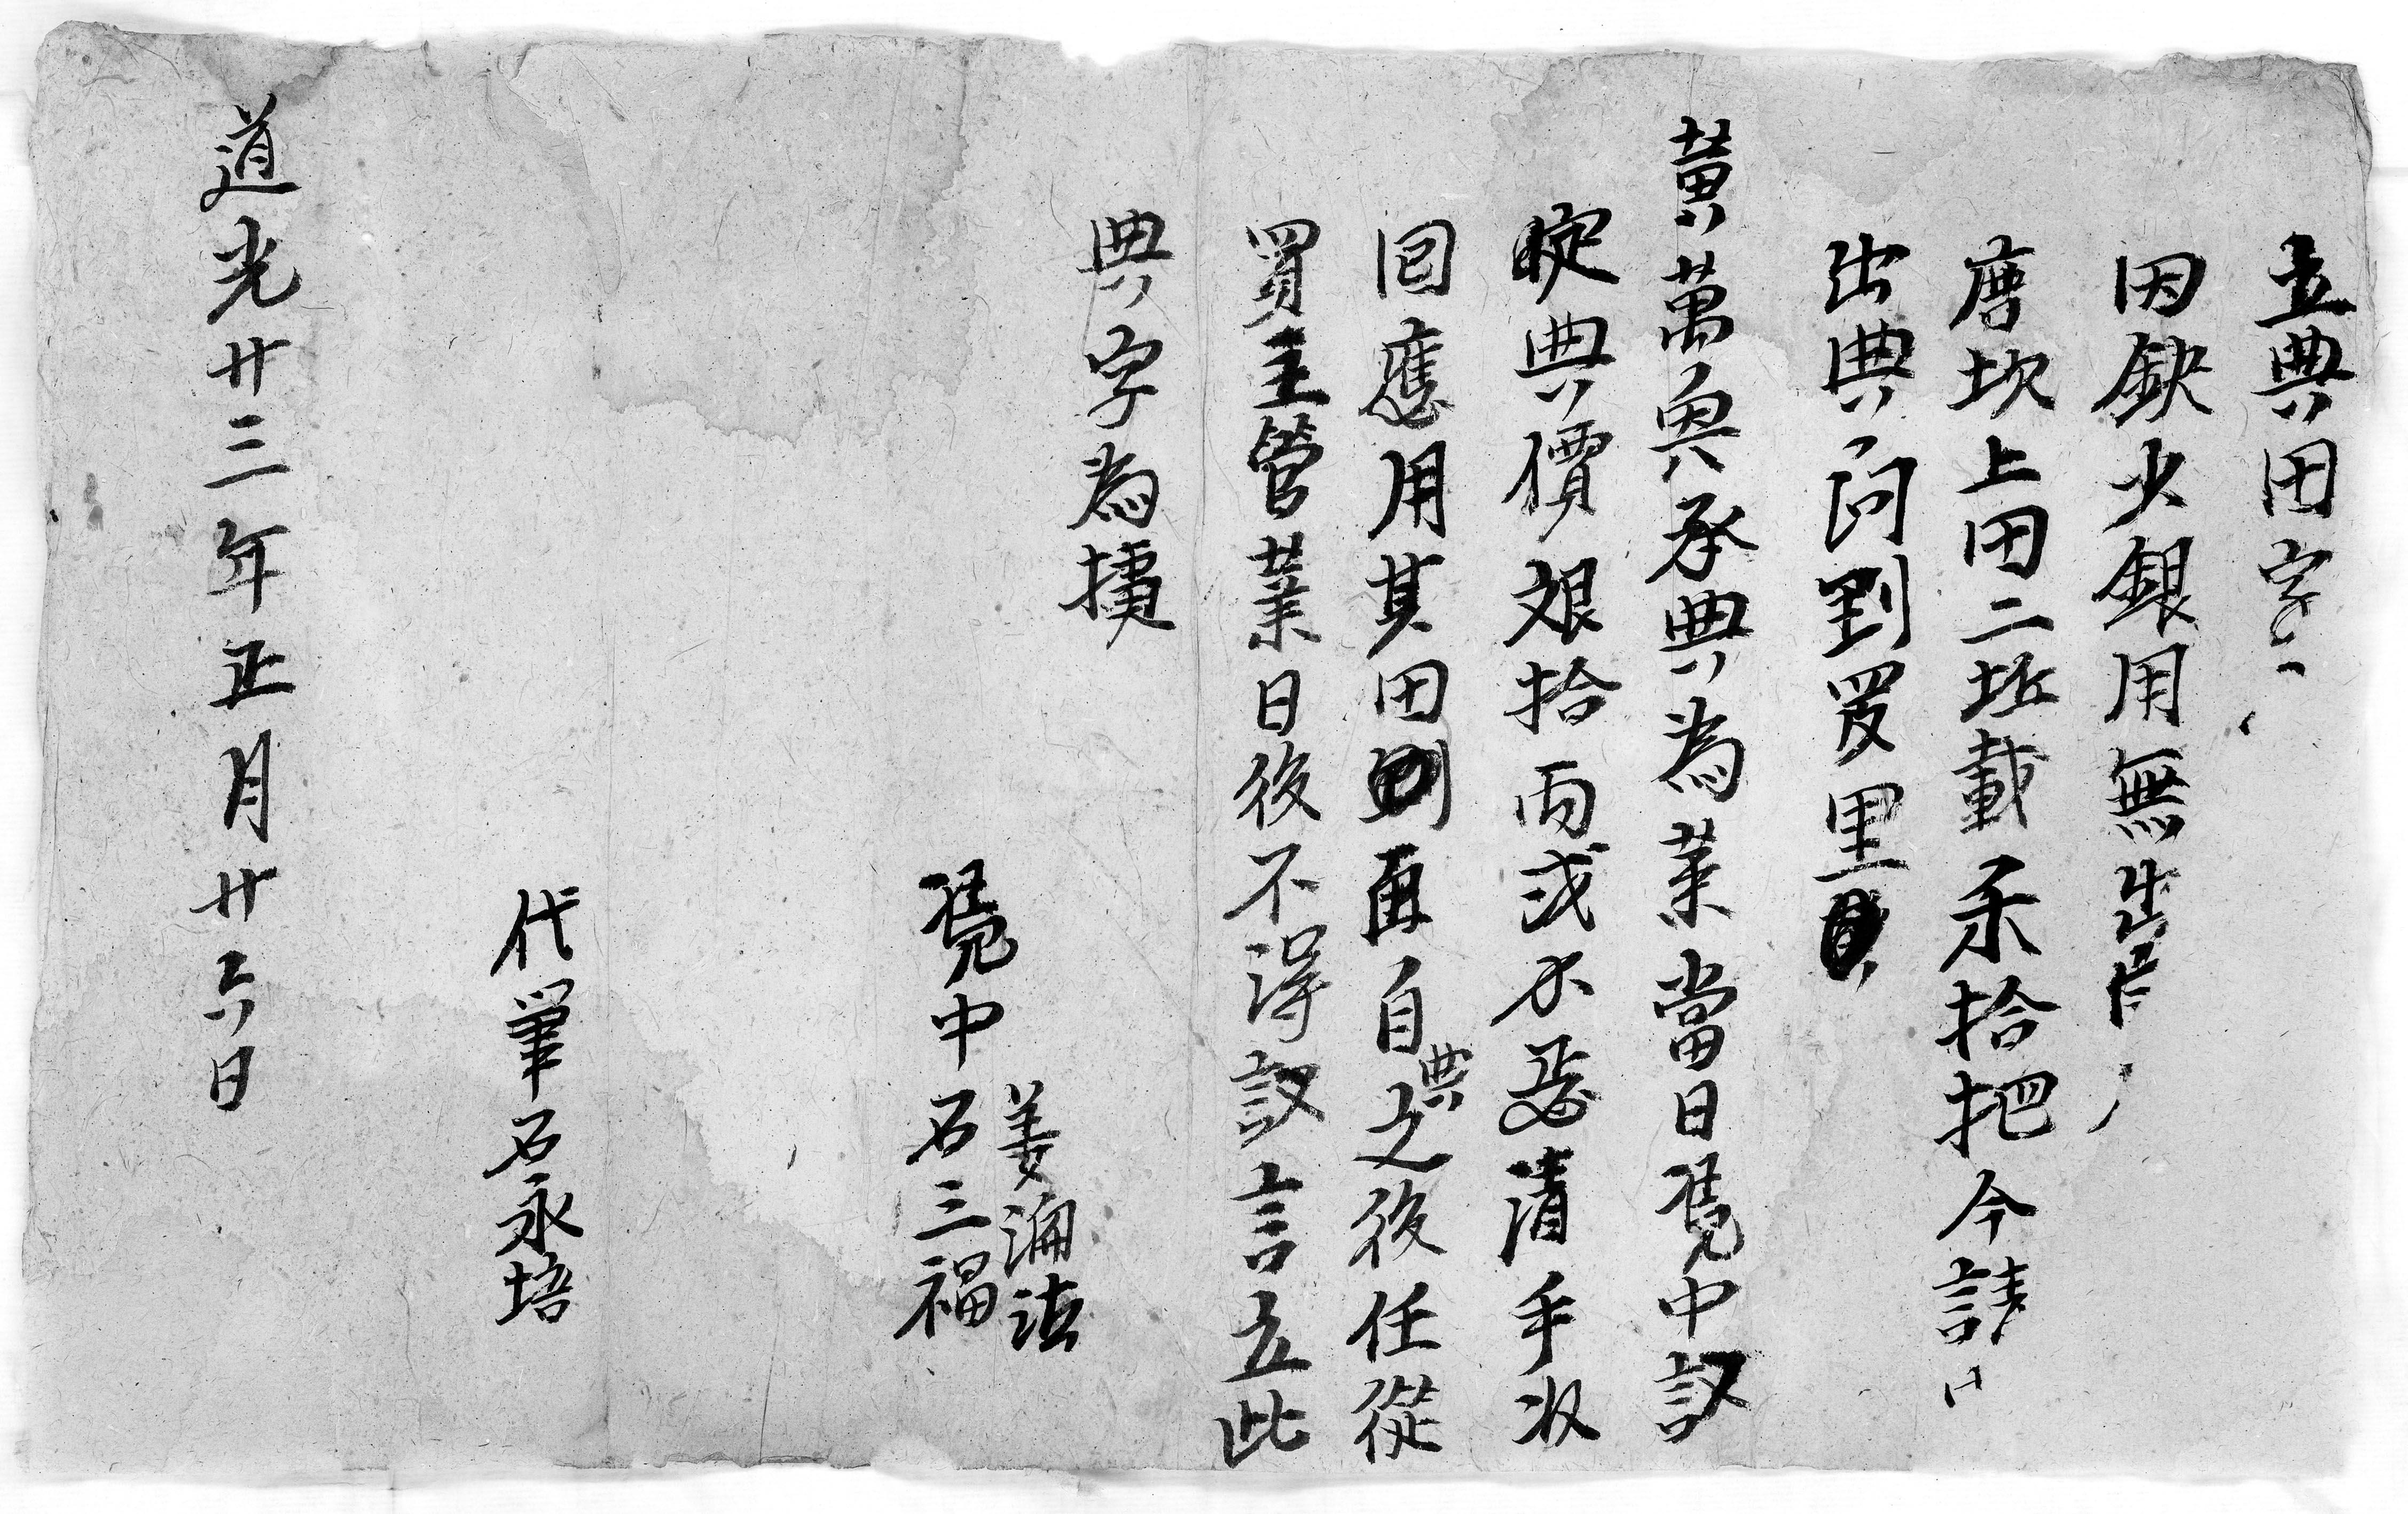 立典田字
因缺少銀用無出
唐坎上田二坵載禾拾把今請
出典問到罗里
黃萬興承典為業當日凴中議
定典價艮拾両或不悮清手收
回應用其田則再自典之後任從
買主管業日後不淂議言立此
典字為據
姜
凴中石三福
代筆石永培
道光廿三年正月廿六日